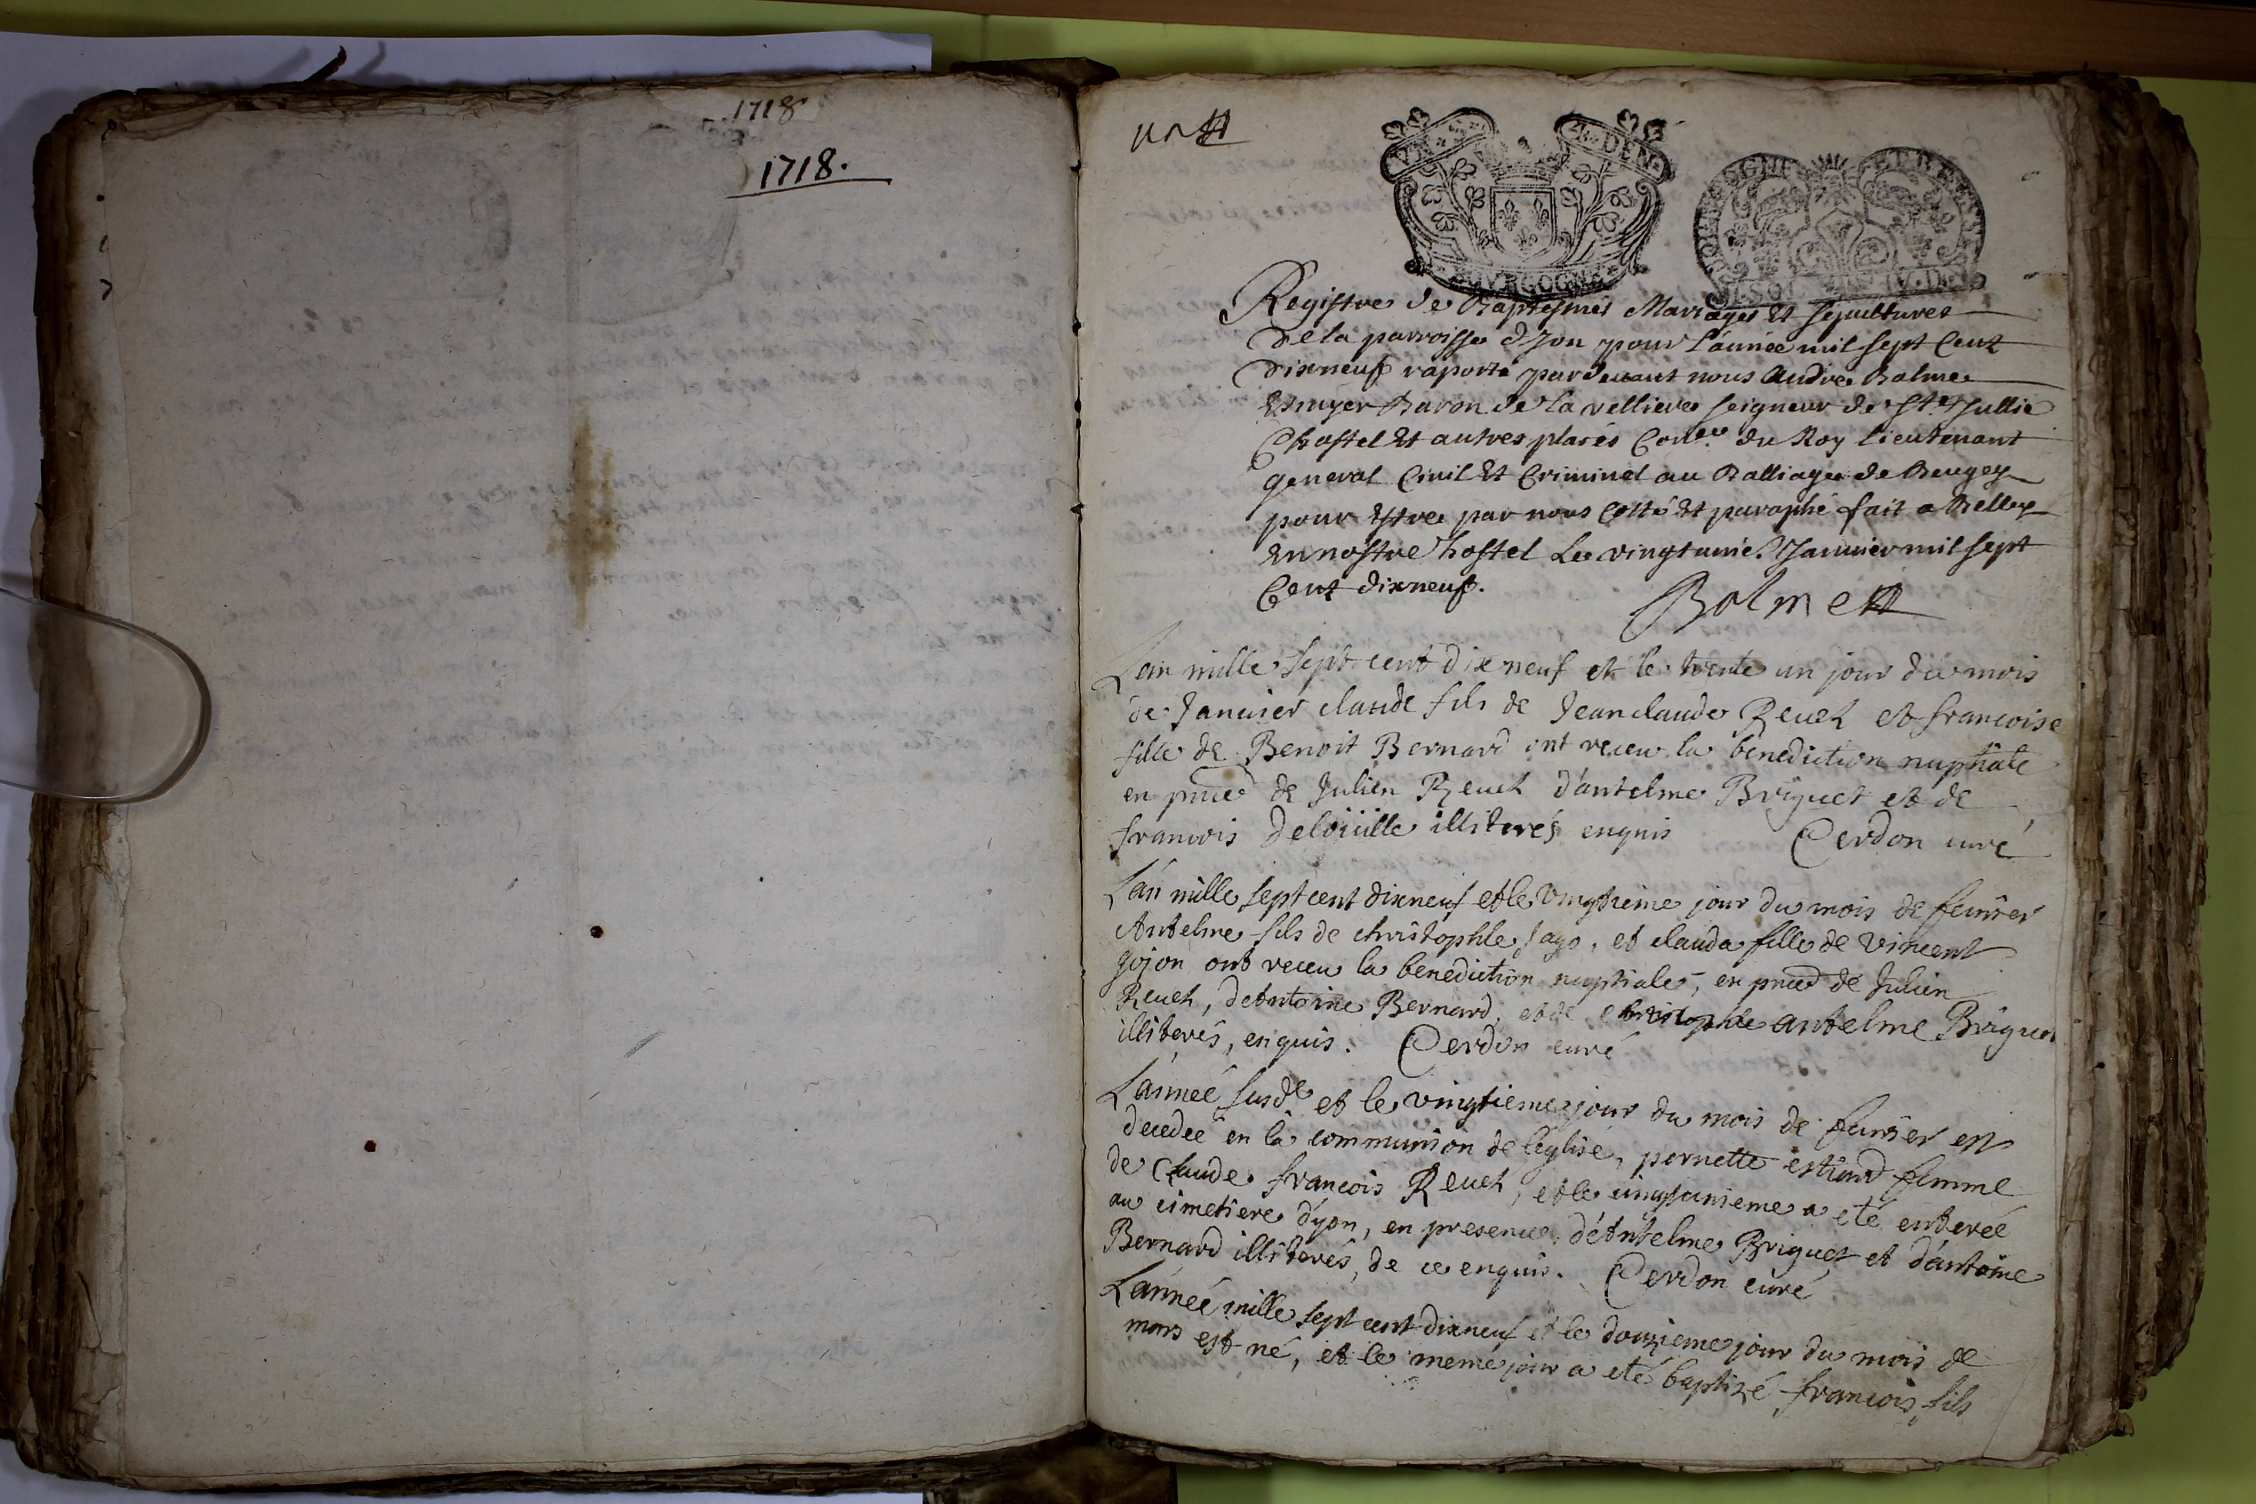 1718
1718.
un
UN S
DEN
BOURGOGNE
Registre de Baptesmes Mariages Et sepultures
de la parroisse dyon pour l'année mil sept Cent
dixneuf raporté pardevant nous Andre Balme
Escuyer Baron de la velliere seigneur de Ste Jullie
Chastel Et autres places Coner du Roy Lieutenant
general Civil Et Criminel au Balliage de Beugey
pour Estre par nous Cotté Et paraphé fait a Belley
En nostre hostel Le vingtunie. Janvier mil sept
Cent dixneuf.
Balme
L'an mille sept cent dix neuf et le trente un jour du mois
de Janvier claude fils de Jean claude Reuet et francoise
fille de Benoit Bernard ont receu la benediction nuptiale
en pnce de Julien Reuet d'antelme Briguet et de
francois Deloüille illiterés enquis Cerdon curé
L'an mille sept cent dixneuf et le vingtieme jour du mois de feuvrier
Antelme fils de christophle Jago, et clauda fille de vincent
Gojon ont receu la benediction nuptiale, en pnce de Julien
Reuet, d'Antoine Bernard, et de christophle antelme Briguet
illiterés, enquis. Cerdon curé
L'année susde et le vingtieme jour du mois de feuvrier est
decedée en la communion de l'eglise, pernette estiard femme
de Claude francois Reuet, et le vingtunieme a eté enterée
au cimetiere d'yon, en presence d'Antelme Briguet et d'antoine
Bernard illiterés, de ce enquis. Cerdon curé
L'année mille sept cent dixneuf et le douzieme jour du mois de
mars est né, et le meme jour a eté baptizé francois, fils